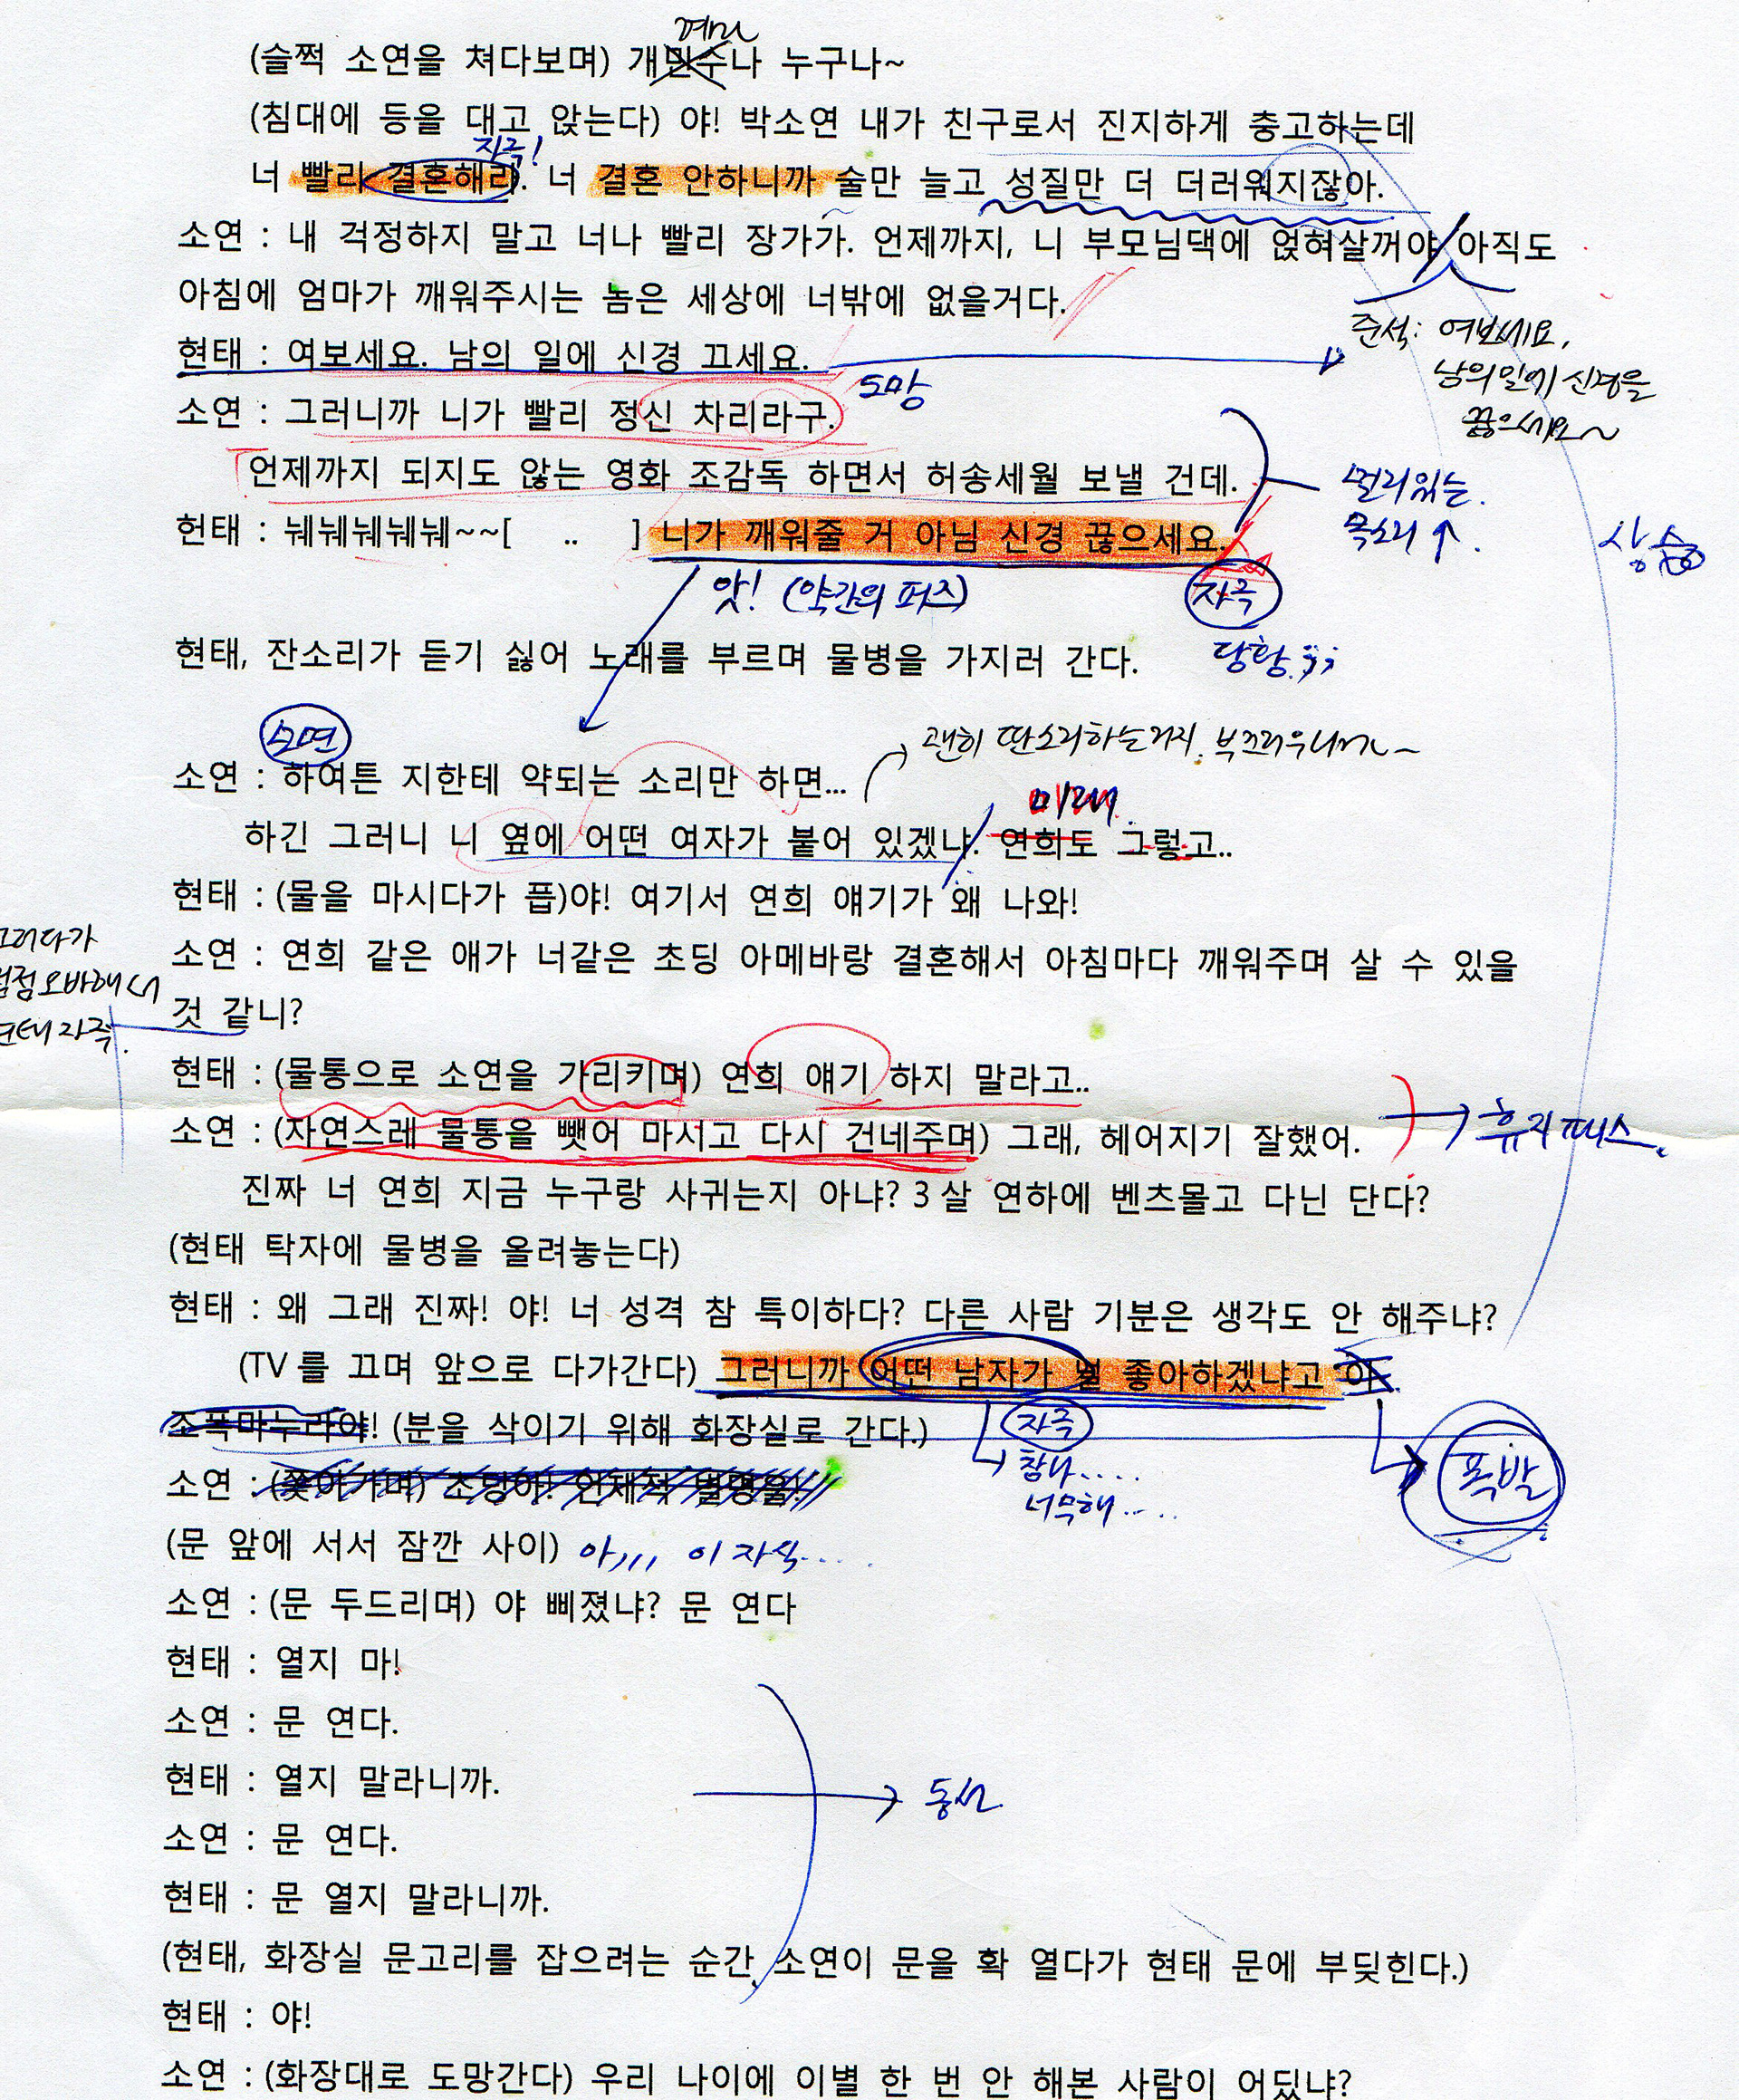 껴니
(슬쩍 소연을 쳐다보며) 개민수나 누구나~
(침대에 등을 대고 앉는다) 야! 박소연 내가 친구로서 진지하게 충고하는데
자극!
너 빨리 결혼해라. 너 결혼 안하니까 술만 늘고 성질만 더 더러워지잖아.
소연 : 내 걱정하지 말고 너나 빨리 장가가. 언제까지, 니 부모님댁에 얹혀살꺼야 아직도
아침에 엄마가 깨워주시는 놈은 세상에 너밖에 없을거다.
준석: 여보세요,
남의 일에 신경을
끊으세요~
현태 : 여보세요. 남의 일에 신경 끄세요.
도망
소연 : 그러니까 니가 빨리 정신 차리라구.
언제까지 되지도 않는 영화 조감독 하면서 허송세월 보낼 건데.
멀리있는.
목소리 ↑.
상승
헌태 : 눼눼눼눼눼~~[ .. ] 니가 깨워줄 거 아님 신경 끊으세요.
앗! (약간의 퍼즈)
자극
당황.;;
현태, 잔소리가 듣기 싫어 노래를 부르며 물병을 가지러 간다.
소연
괜히 딴소리하는거지. 부끄러우니까~
소연 : 하여튼 지한테 약되는 소리만 하면...
미래
하긴 그러니 니 옆에 어떤 여자가 붙어 있겠냐. 연희도 그렇고..
현태 : (물을 마시다가 픕)야! 여기서 연희 얘기가 왜 나와!
그러다가
점점 오바해서
현태 자극.
소연 : 연희 같은 애가 너같은 초딩 아메바랑 결혼해서 아침마다 깨워주며 살 수 있을
것 같니?
현태 : (물통으로 소연을 가리키며) 연희 얘기 하지 말라고..
소연 : (자연스레 물통을 뺏어 마시고 다시 건네주며) 그래, 헤어지기 잘했어.
휴지 패스.
진짜 너 연희 지금 누구랑 사귀는지 아냐? 3살 연하에 벤츠몰고 다닌 단다?
(현태 탁자에 물병을 올려놓는다)
현태 : 왜 그래 진짜! 야! 너 성격 참 특이하다? 다른 사람 기분은 생각도 안 해주냐?
(TV를 끄며 앞으로 다가간다) 그러니까 어떤 남자가 널 좋아하겠냐고 이
조폭마누라야! (분을 삭이기 위해 화장실로 간다.)
자극
참나....
너무해....
폭발
소연 : (쫓아가며) 초딩아! 언제적 별명을!
(문 앞에 서서 잠깐 사이) 아,,,, 이 자식.....
소연 : (문 두드리며) 야 삐졌냐? 문 연다
현태 : 열지 마!
소연 : 문 연다.
현태 : 열지 말라니까.
동선
소연 : 문 연다.
현태 : 문 열지 말라니까.
(현태, 화장실 문고리를 잡으려는 순간, 소연이 문을 확 열다가 현태 문에 부딪힌다.)
현태 : 야!
소연 : (화장대로 도망간다) 우리 나이에 이별 한 번 안 해본 사람이 어딨냐?